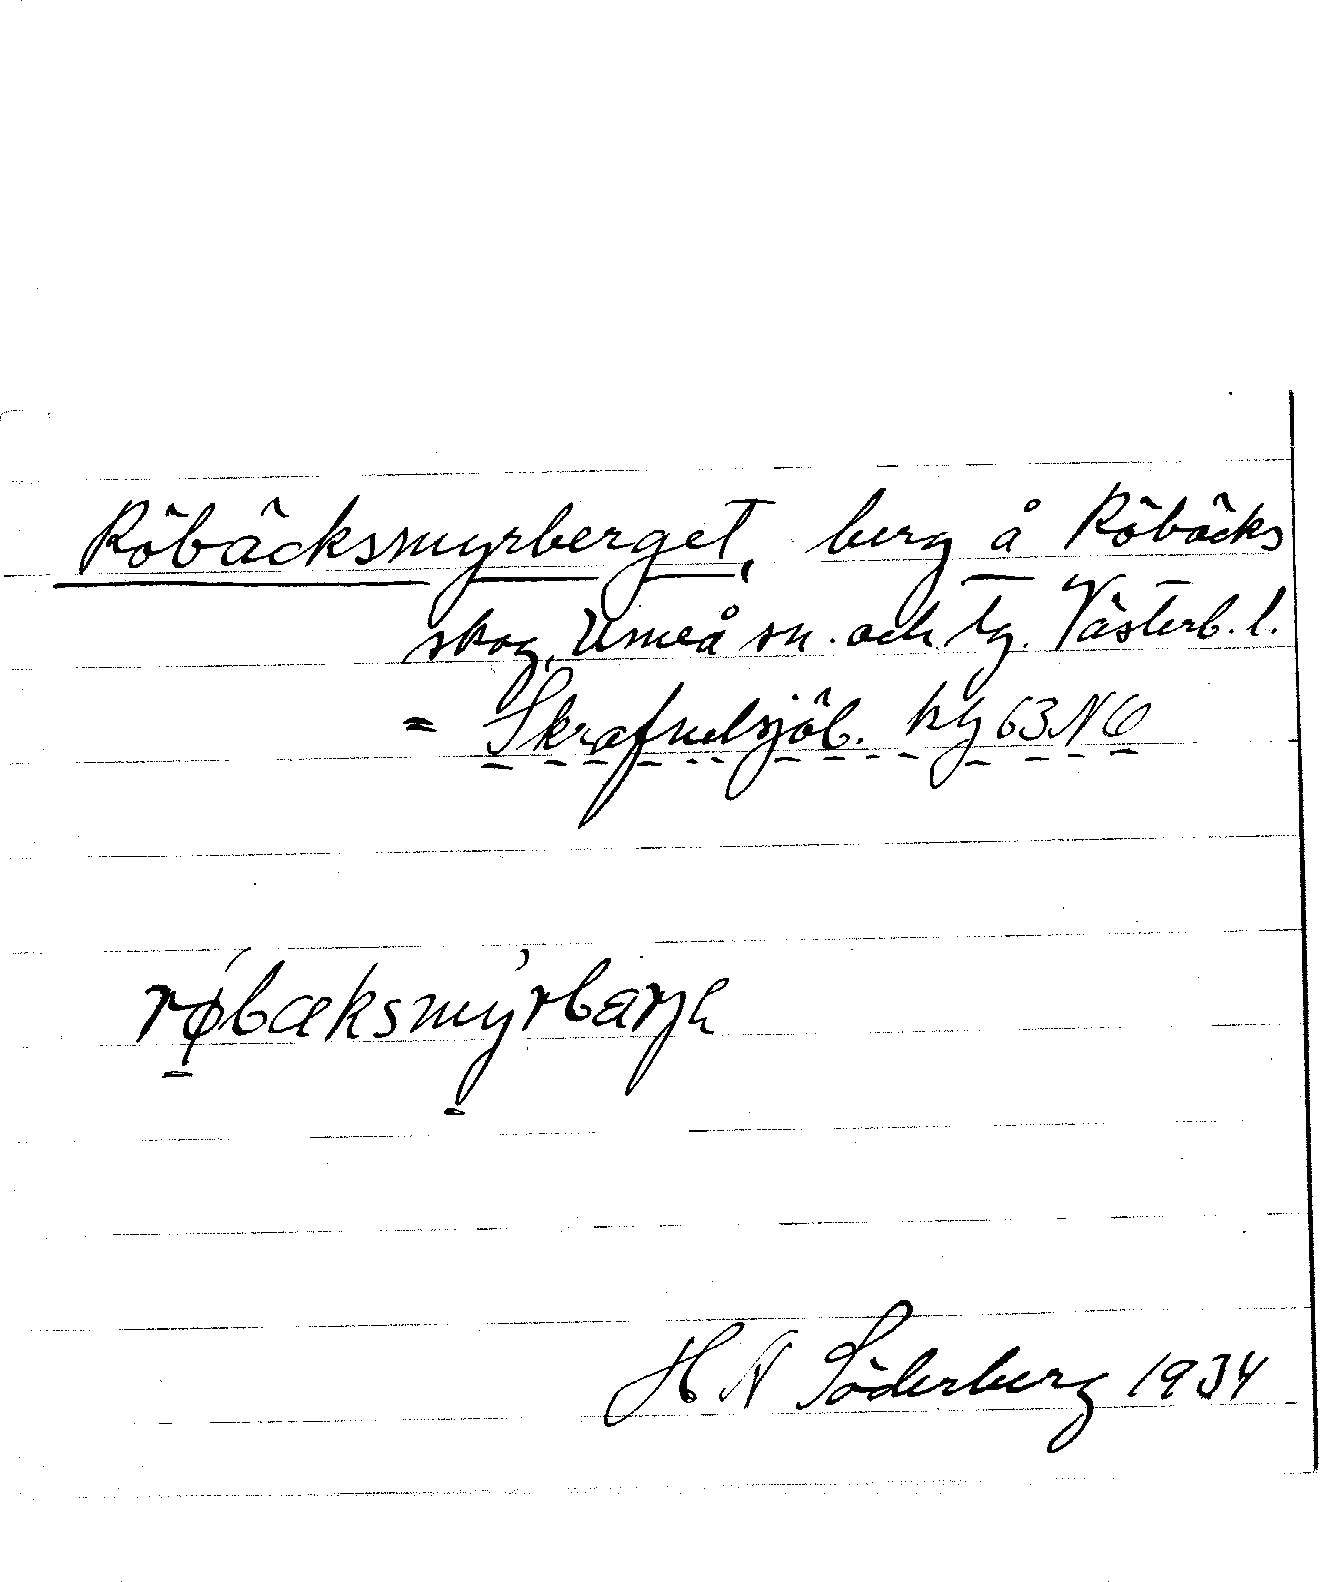 Röbäcksmyrberget, berg å Röbäcks
skog, Umeå sn. och tg. Västerb. l.
= Skrafvelsjöb. hg 63 NO
røbæksmyrbærje
H N Söderberg 1934